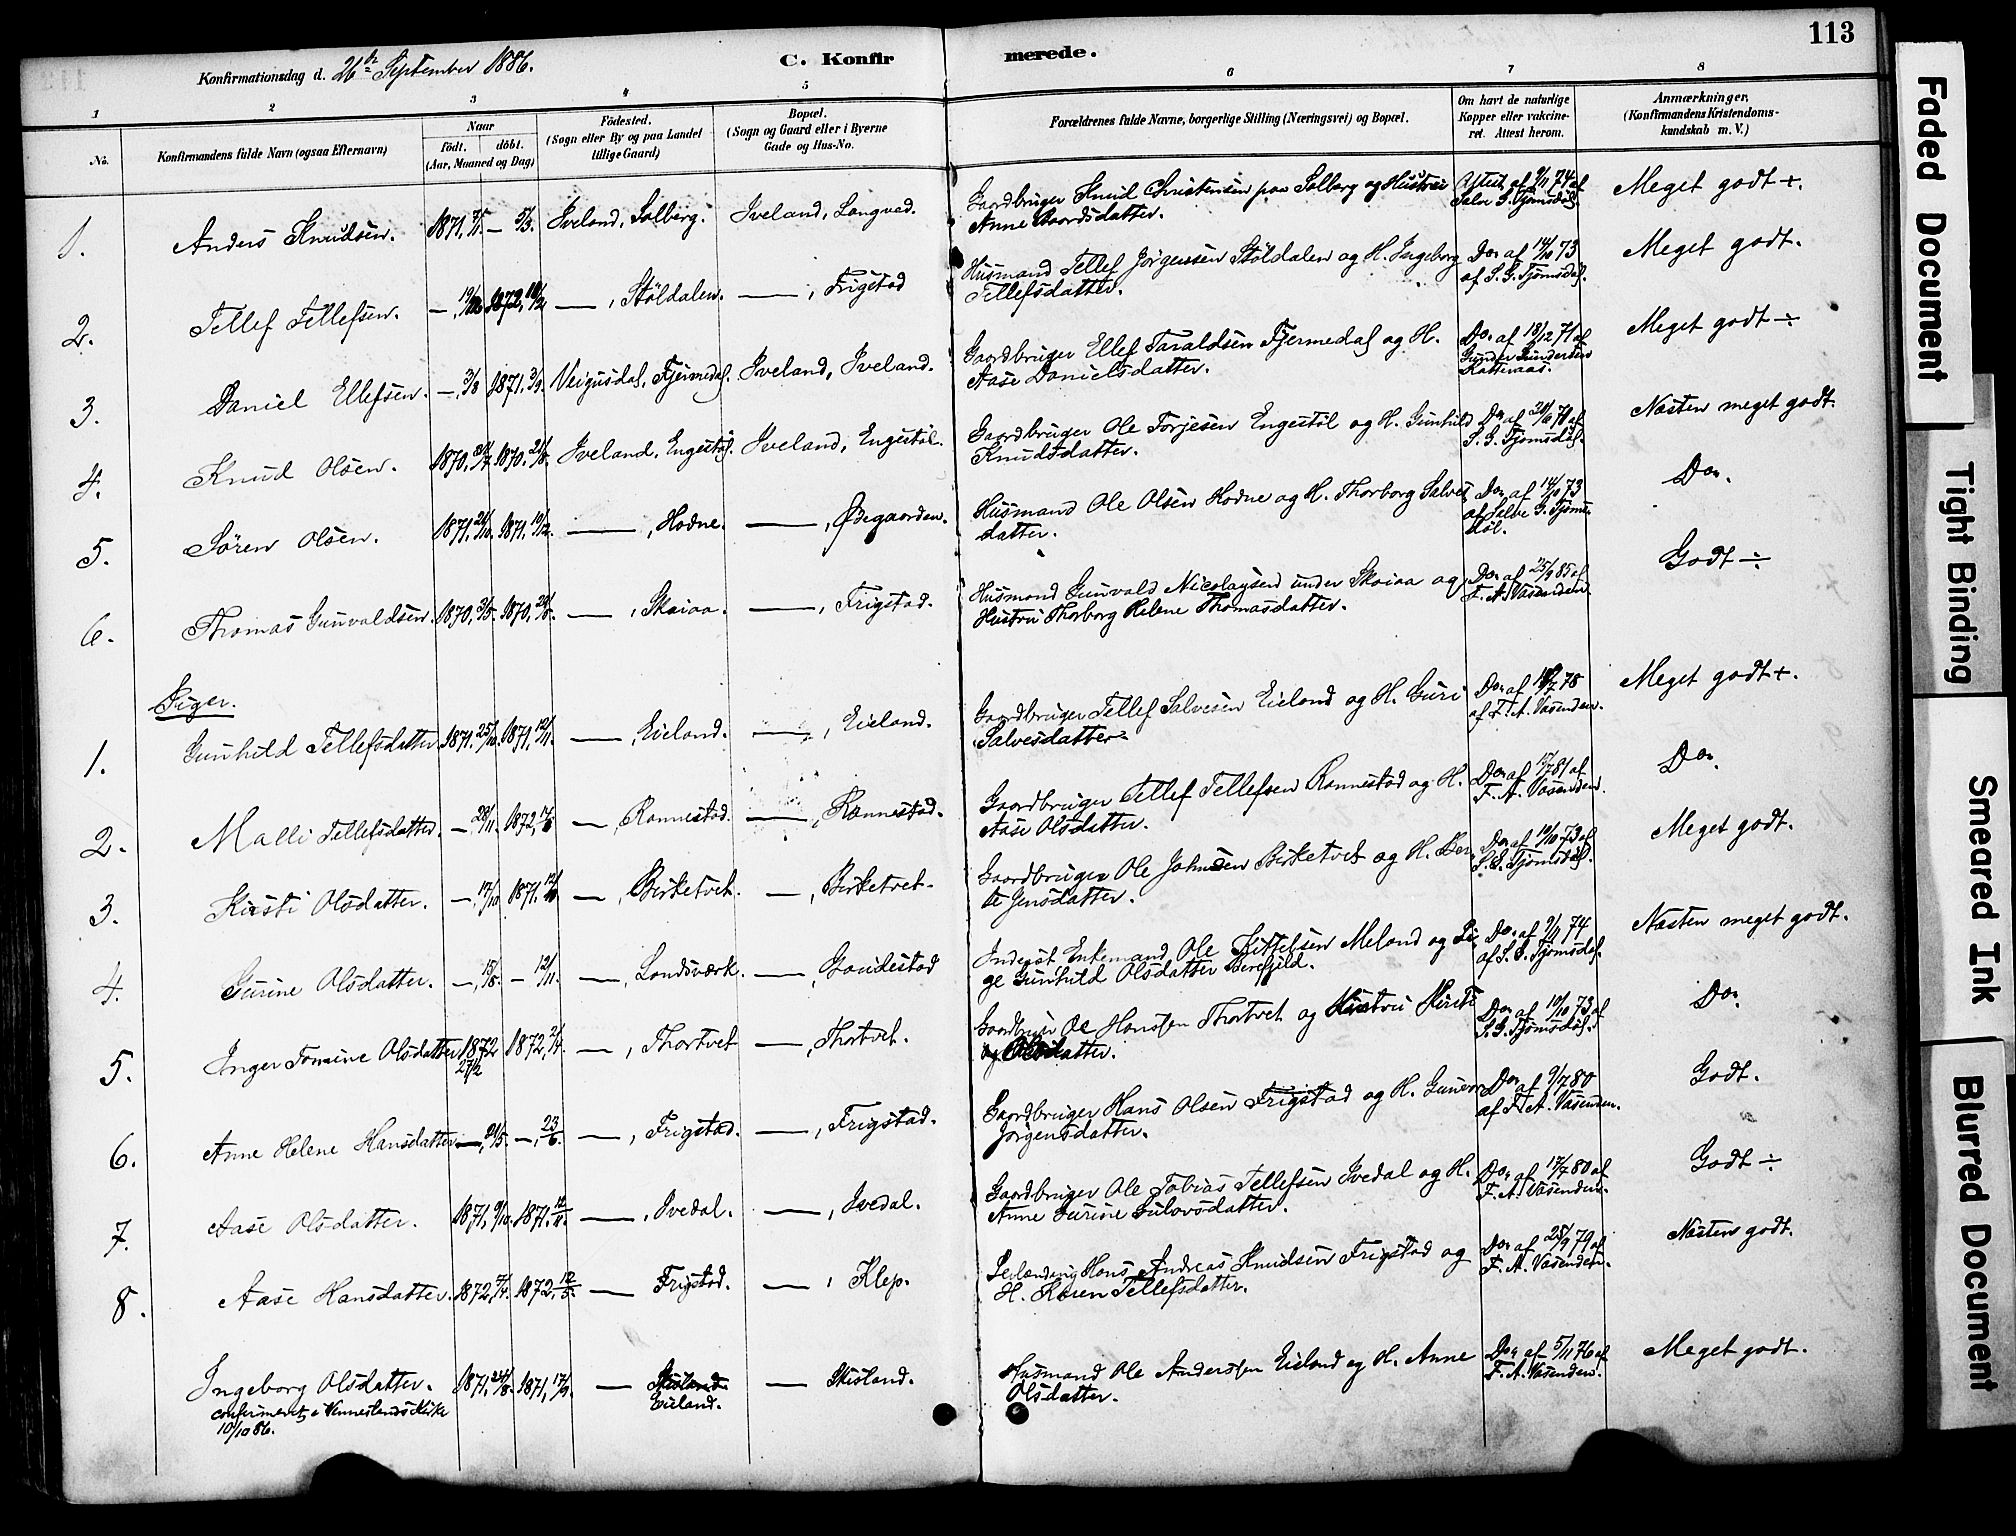 113
Konfirmationsdag d. 26de September 1886.
C. Konfirmerede.
1 2 3 4 5 6 7 8
No.
Konfirmandens fulde Navn (ogsaa Efternavn)
Naar
født. døbt.
(Aar, Maaned og Dag)
Fødested.
(Sogn eller By og paa Landet
tillige Gaard)
Bopæl.
(Sogn og Gaard eller i Byerne
Gade og Hus-No.
Forældrenes fulde Navne, borgerlige Stilling (Næringsvei) og Bopæl.
Om havt de naturlige
Kopper eller vakcine-
ret. Attest herom.
Anmærkninger.
(Konfirmandens Kristendoms-
kundskab m. V.)
1. Anders Knudsen. 1871, — 5/3. Iveland, Solberg. Iveland, Langved. Gaardbruger Knud Christensen paa Solberg og Hustru Attest af 9/11 74 af Meget godt +.
Anne Gaardsdatter. Salve G. Tjomsdøl.
2. Tellef Tellefsen. —, 19/12 1872, 18/2 —, Støldalen. —, Frigstad Husmand Tellef Jørgensen Støldalen og H. Ingeborg Do. af 14/10 73 Meget godt.
Tellefsdatter. af S. G. Tjomsdøl.
3. Daniel Ellefsen. —, 3/8 1871, 3/9. Veigusdal, Fjermedal. Iveland, Iveland. Gaardbruger Ellef Taraldsen Fjermedal og H. Do. af 18/12 71 af Meget godt ÷
Aase Danielsdatter. Gunder Gundersen
Katteraas.
4. Knud Olsen. 1870, 1870, 21/8. Iveland, Engestøl. Iveland, Engestøl. Gaardbruger Ole Torjesen Engestøl og H. Gunhild Do. af Næsten meget godt.
Knudsdatter. S. G. Tjomsdøl.
5. Søren Olsen. 1871, 1871, 19/12. —, Hodne. —, Øbegaarden. Husmand Ole Olsen Hodne og H. Thorborg Salves Do. af 14/10 73 Do.
datter. af Salve G. Tjoms
døl.
6. Thomas Gunvaldsen. 1870, 1870, —, Skaiaa. —, Frigstad. Husmand Gunvald Nicolaysen under Skaiaa og Do. af 25/9 85 af Godt ÷
Hustru Thorborg Helene Thomasdatter. F. A. Vasenden
Piger.
1. Gunhild Tellefsdatter. 1871, 25/10. 1871, 12/11. —, Eieland. —, Eieland. Gaardbruger Tellef Salvesen Eieland og H. Guri Do. af 78 Meget godt +.
Salvesdatter. af F. A. Vasenden.
2. Malli Tellefsdatter. —, 28/11. 1872, —, Rannestad. —, Rannestad. Gaardbruger Tellef Tellefsen Rannestad og H. Do. af 15/7 81 af Do.
Aase Olsdatter. F. A. Vasenden.
3. Kirsti Olsdatter. —, 17/10 1871, —, Birketvet. —, Birketvet. Gaardbruger Ole Johnsen Birketvet og H. Ber Do. af 10/10 73 af Meget godt.
te Jensdatter. S. G. Tjomsdøl.
4. Gurine Olsdatter. —, 15/8. — 12/11. —, Landsværk. —, Gaudestad Inderst Enkemand Ole Kittelsen Meland og Pi Do. af 9/11 74 Næsten meget godt.
ge Gunhild Olsdatter Berefjeld. af S. G. Tjomsdøl.
5. Inger Tomine Olsdatter 1872 1872, —, Thortvet —, Thortvet. Gaardbruger Ole Hanssen Thortvet og Hustru Kirsti Do. af 10/10 73 af Do.
27/2 Olsdatter. S. G. Tjomsdøl.
6. Anne Helene Hansdatter —, 21/5. —, 23/6. —, Frigstad. —, Frigstad. Gaardbruger Hans Olsen Frigstad og H. Gunvor Do. af 9/7 80 Godt.
Jørgensdatter. af F. A. Vasenden.
7. Aase Olsdatter. 1871, 9/10. 1871, 12/11. —, Ivedal. —, Ivedal. Gaardbruger Ole Tobias Tellefsen Ivedal og H. Do. af 17/7 80 af Godt ÷
Anne Gurine Gulovsdatter. F. A. Vasenden.
8. Aase Hansdatter. 1872, 1872, 12/5. — Frigstad. —, Klep. Leilænding Hans Andreas Knudsen Frigstad og Do. af 25/9 79 af Næsten godt.
H. Karen Tellefsdatter. F. A. Vasenden.
Ingeborg Olsdatter. 1871, 24/8. 1871, 17/9. — Skisland — Skisland. Husmand Ole Anderssen Eieland og H. Anne Do. af 5/11 76 af Meget godt.
confirmeret i Venneslands Kirke Eieland. Olsdatter. F. A. Vasenden.
10/10 86.
Faded Document
Tight Binding
Smeared Ink
Blurred Document